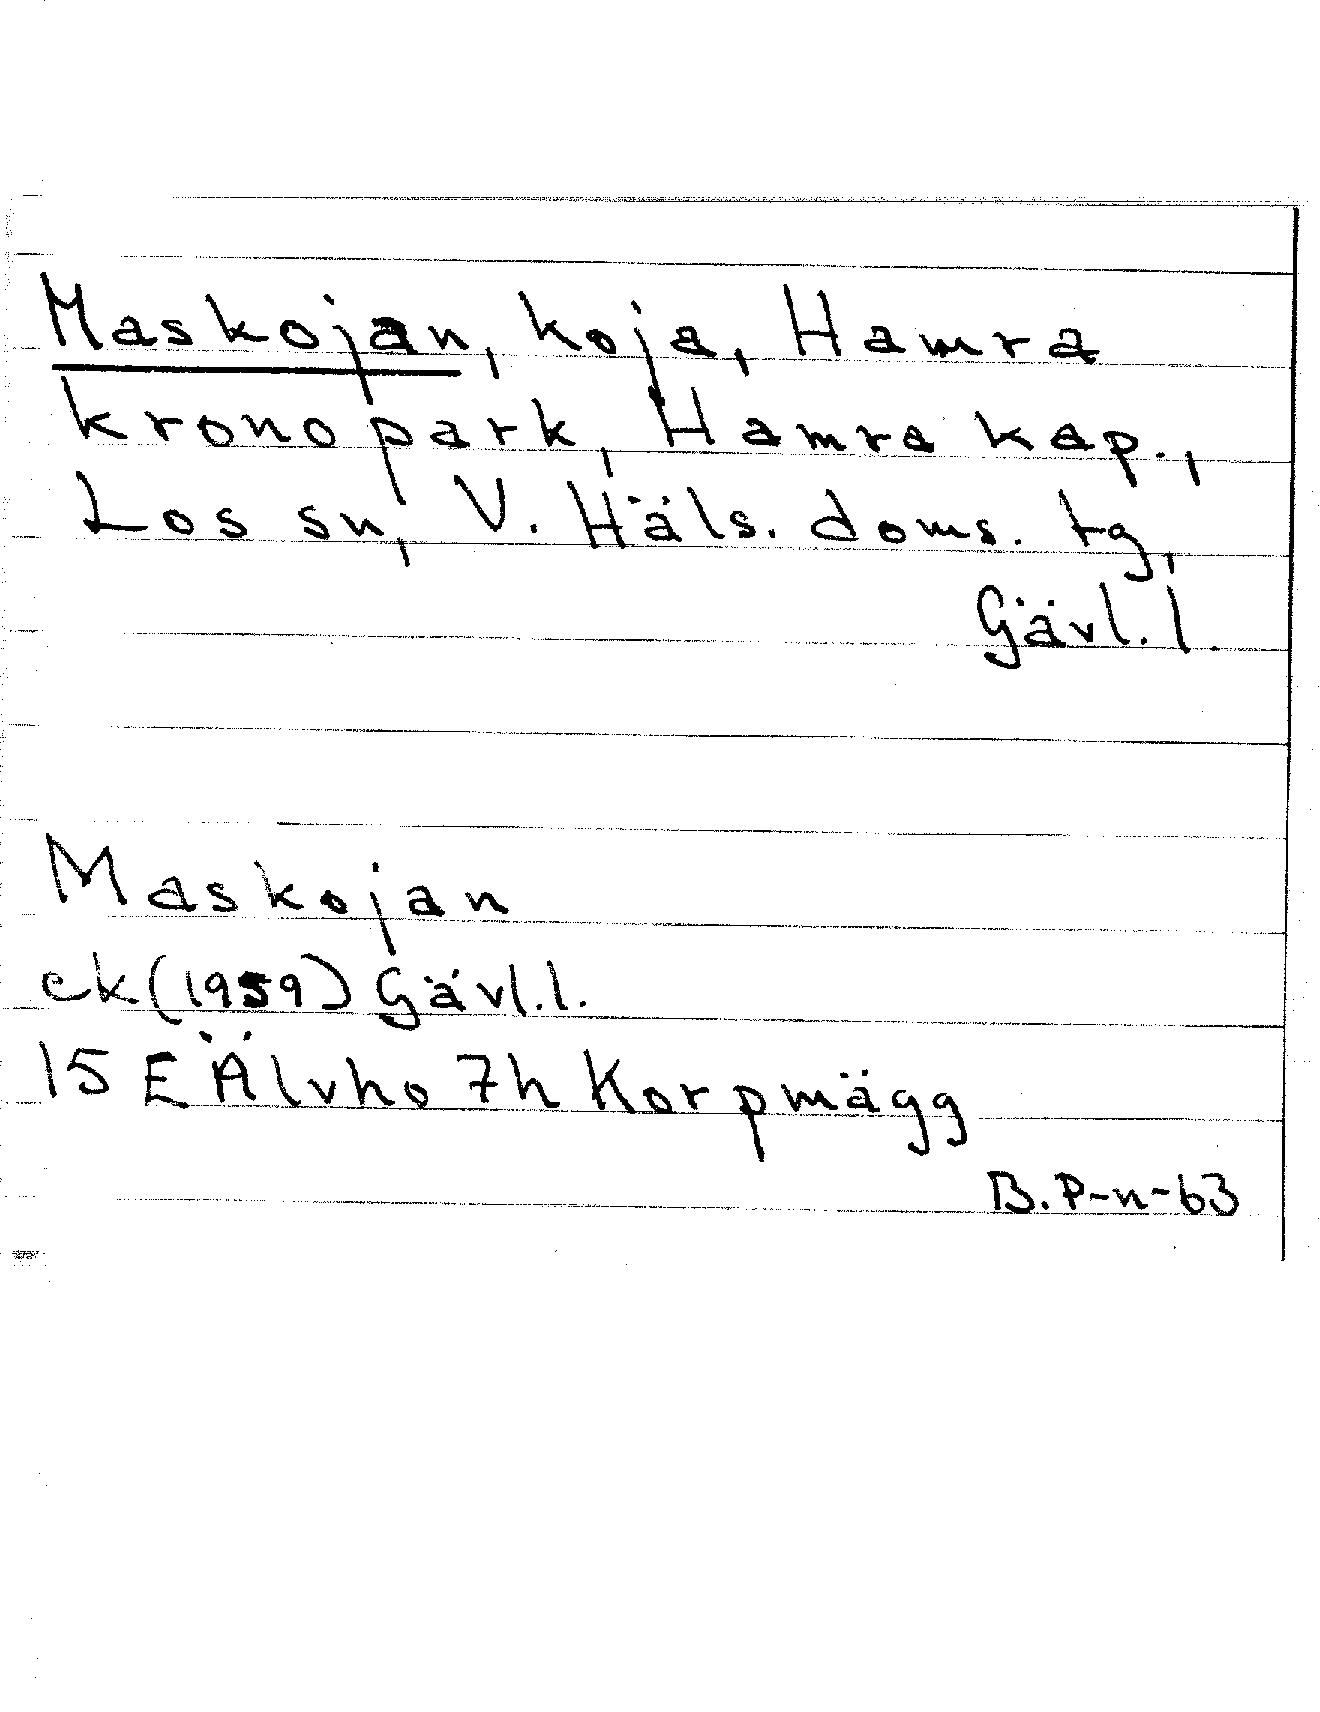 Maskojan, koja, Hamra
kronopark, Hamra kap.,
Los sn, V. Häls. doms. tg,
Gävl. l.
Maskojan
ek (1959) Gävl. l.
15 E Älvho 7h Korpmägg
B. P-n-63